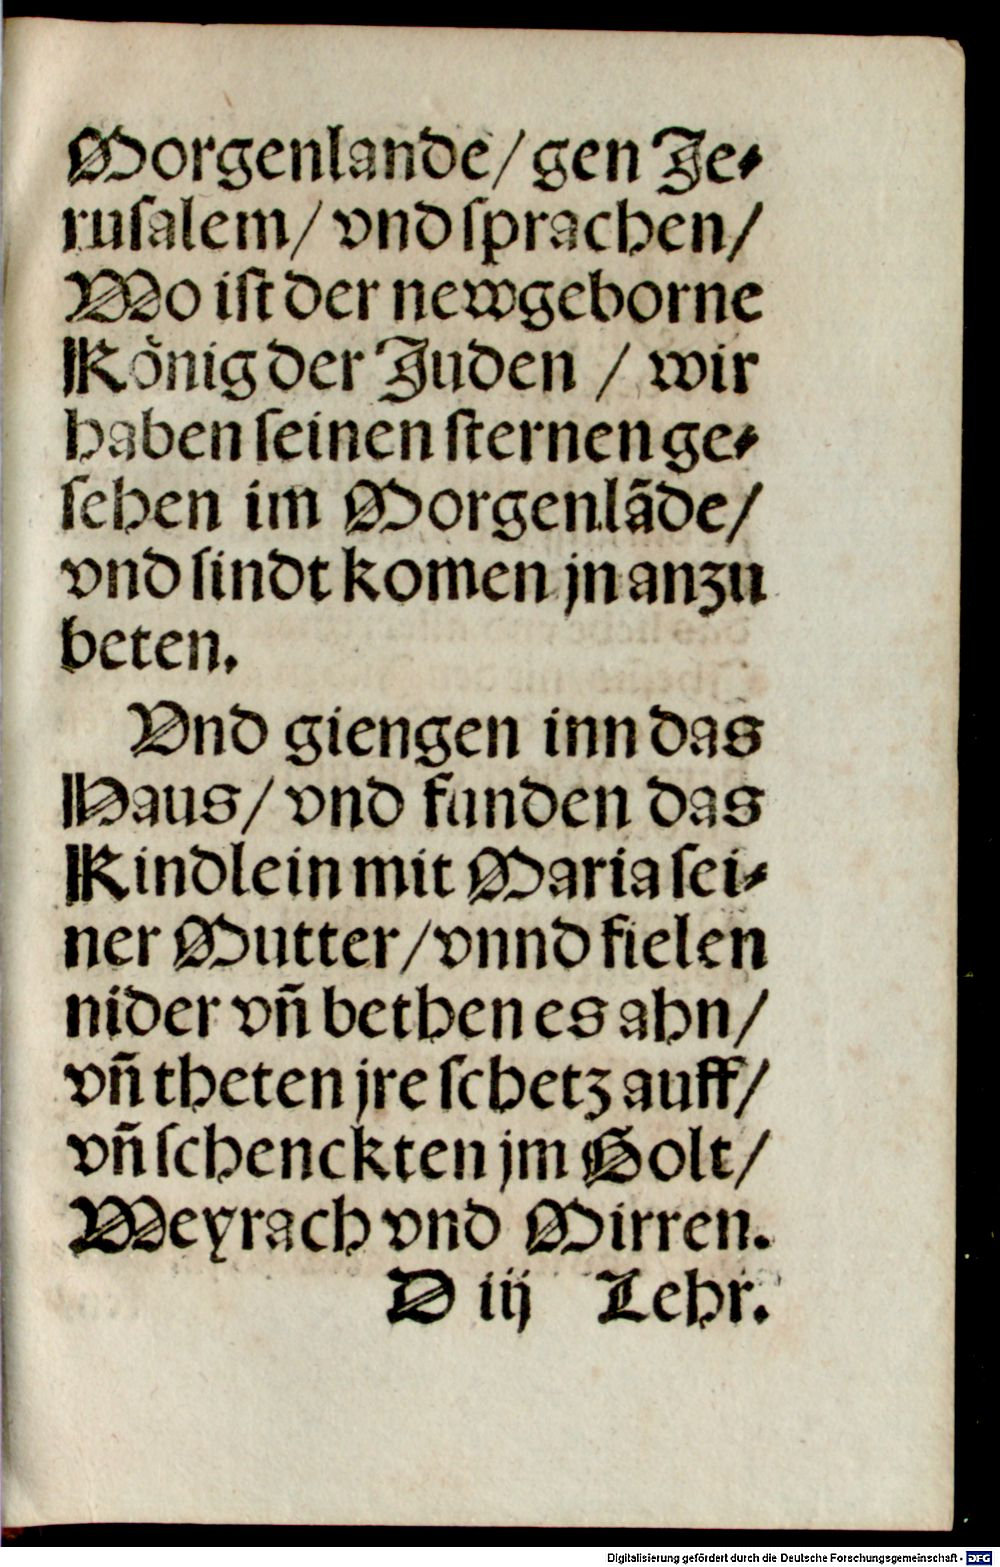 Morgenlande/ gen Je⸗
ruſalem/ vnd ſprachen/
Wo iſt der newgeborne
Koͤnig der Juden / wir
haben ſeinen ſternen ge⸗
ſehen im Morgenlãde/
vnd ſindt komen jn anzu
beten.
Vnd giengen inn das
Haus/ vnd funden das
Kindlein mit Maria ſei⸗
ner Mutter/ vnnd fielen
nider vñ bethen es ahn/
vñ theten jre ſchetz auff/
vñ ſchenckten jm Golt/
Weyrach vnd Mirren.
D iij Lehr.
Digitalisierung gefördert durch die Deutsche Forschungsgemeinschaft - DFG